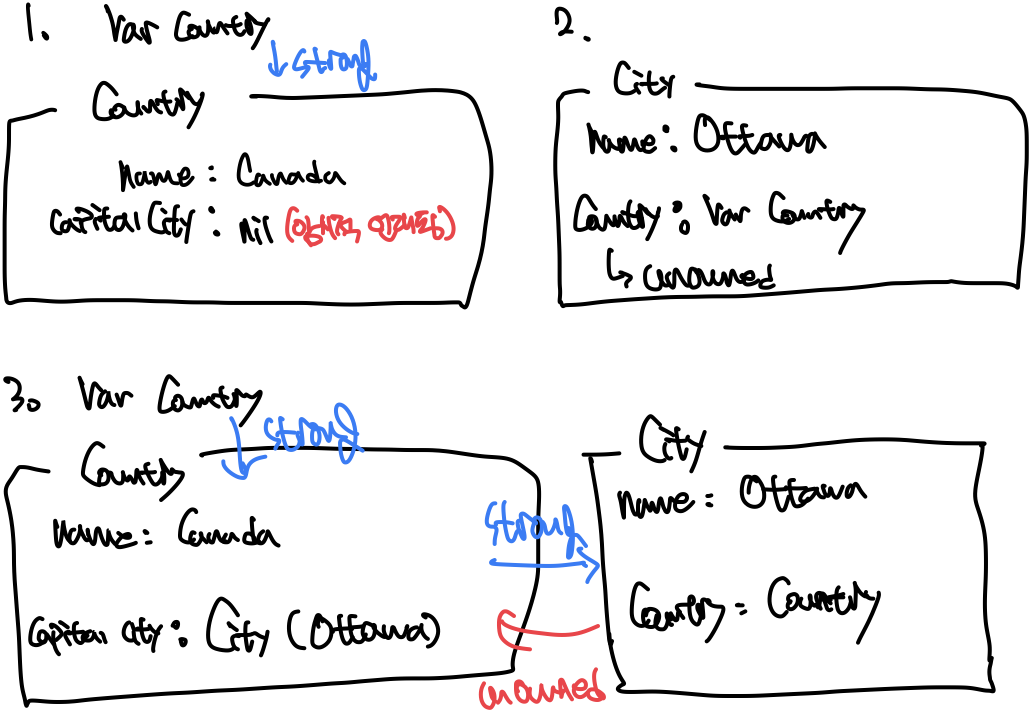 1. Var Country
↓ strong
Country
Name : Canada
Capital City : nil
2.
City
Name : Ottawa
Country : Var Country
↳ unowned
3. Var Country
↓ strong
Country
Name : Canada
Capital City : City (Ottawa)
strong
unowned
City
Name : Ottawa
Country = Country